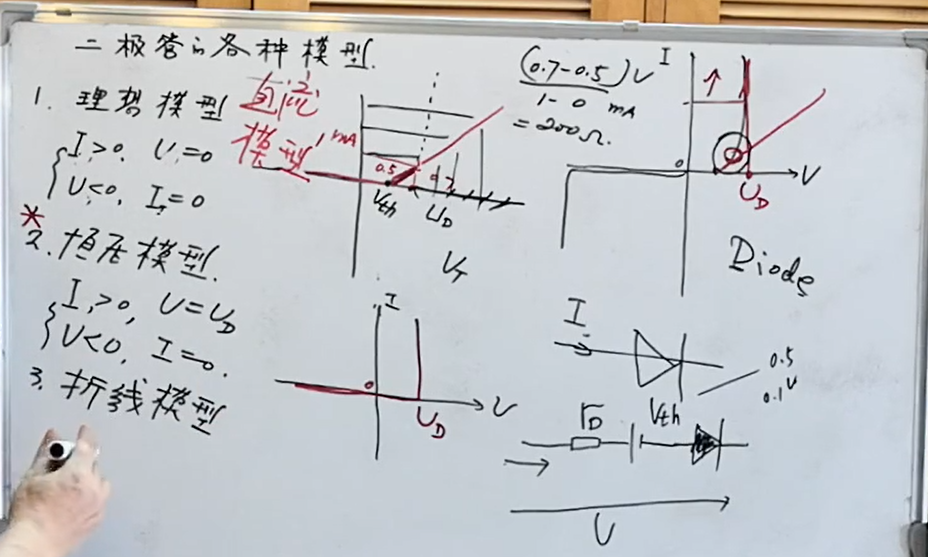 二极管的各种模型.
1. 理想模型
I>0, U=0
U<0, I=0
* 2. 恒压模型.
I>0, U=U_D
U<0, I=0.
3. 折线模型
直流
模型
1mA
0.5
0.7
Vth
U_D
U_T
(0.7-0.5)V
1-0 mA
=200Ω.
I
0
V
U_D
Diode
I
0
U
U_D
I
0.5
0.1V
r_D
Vth
U